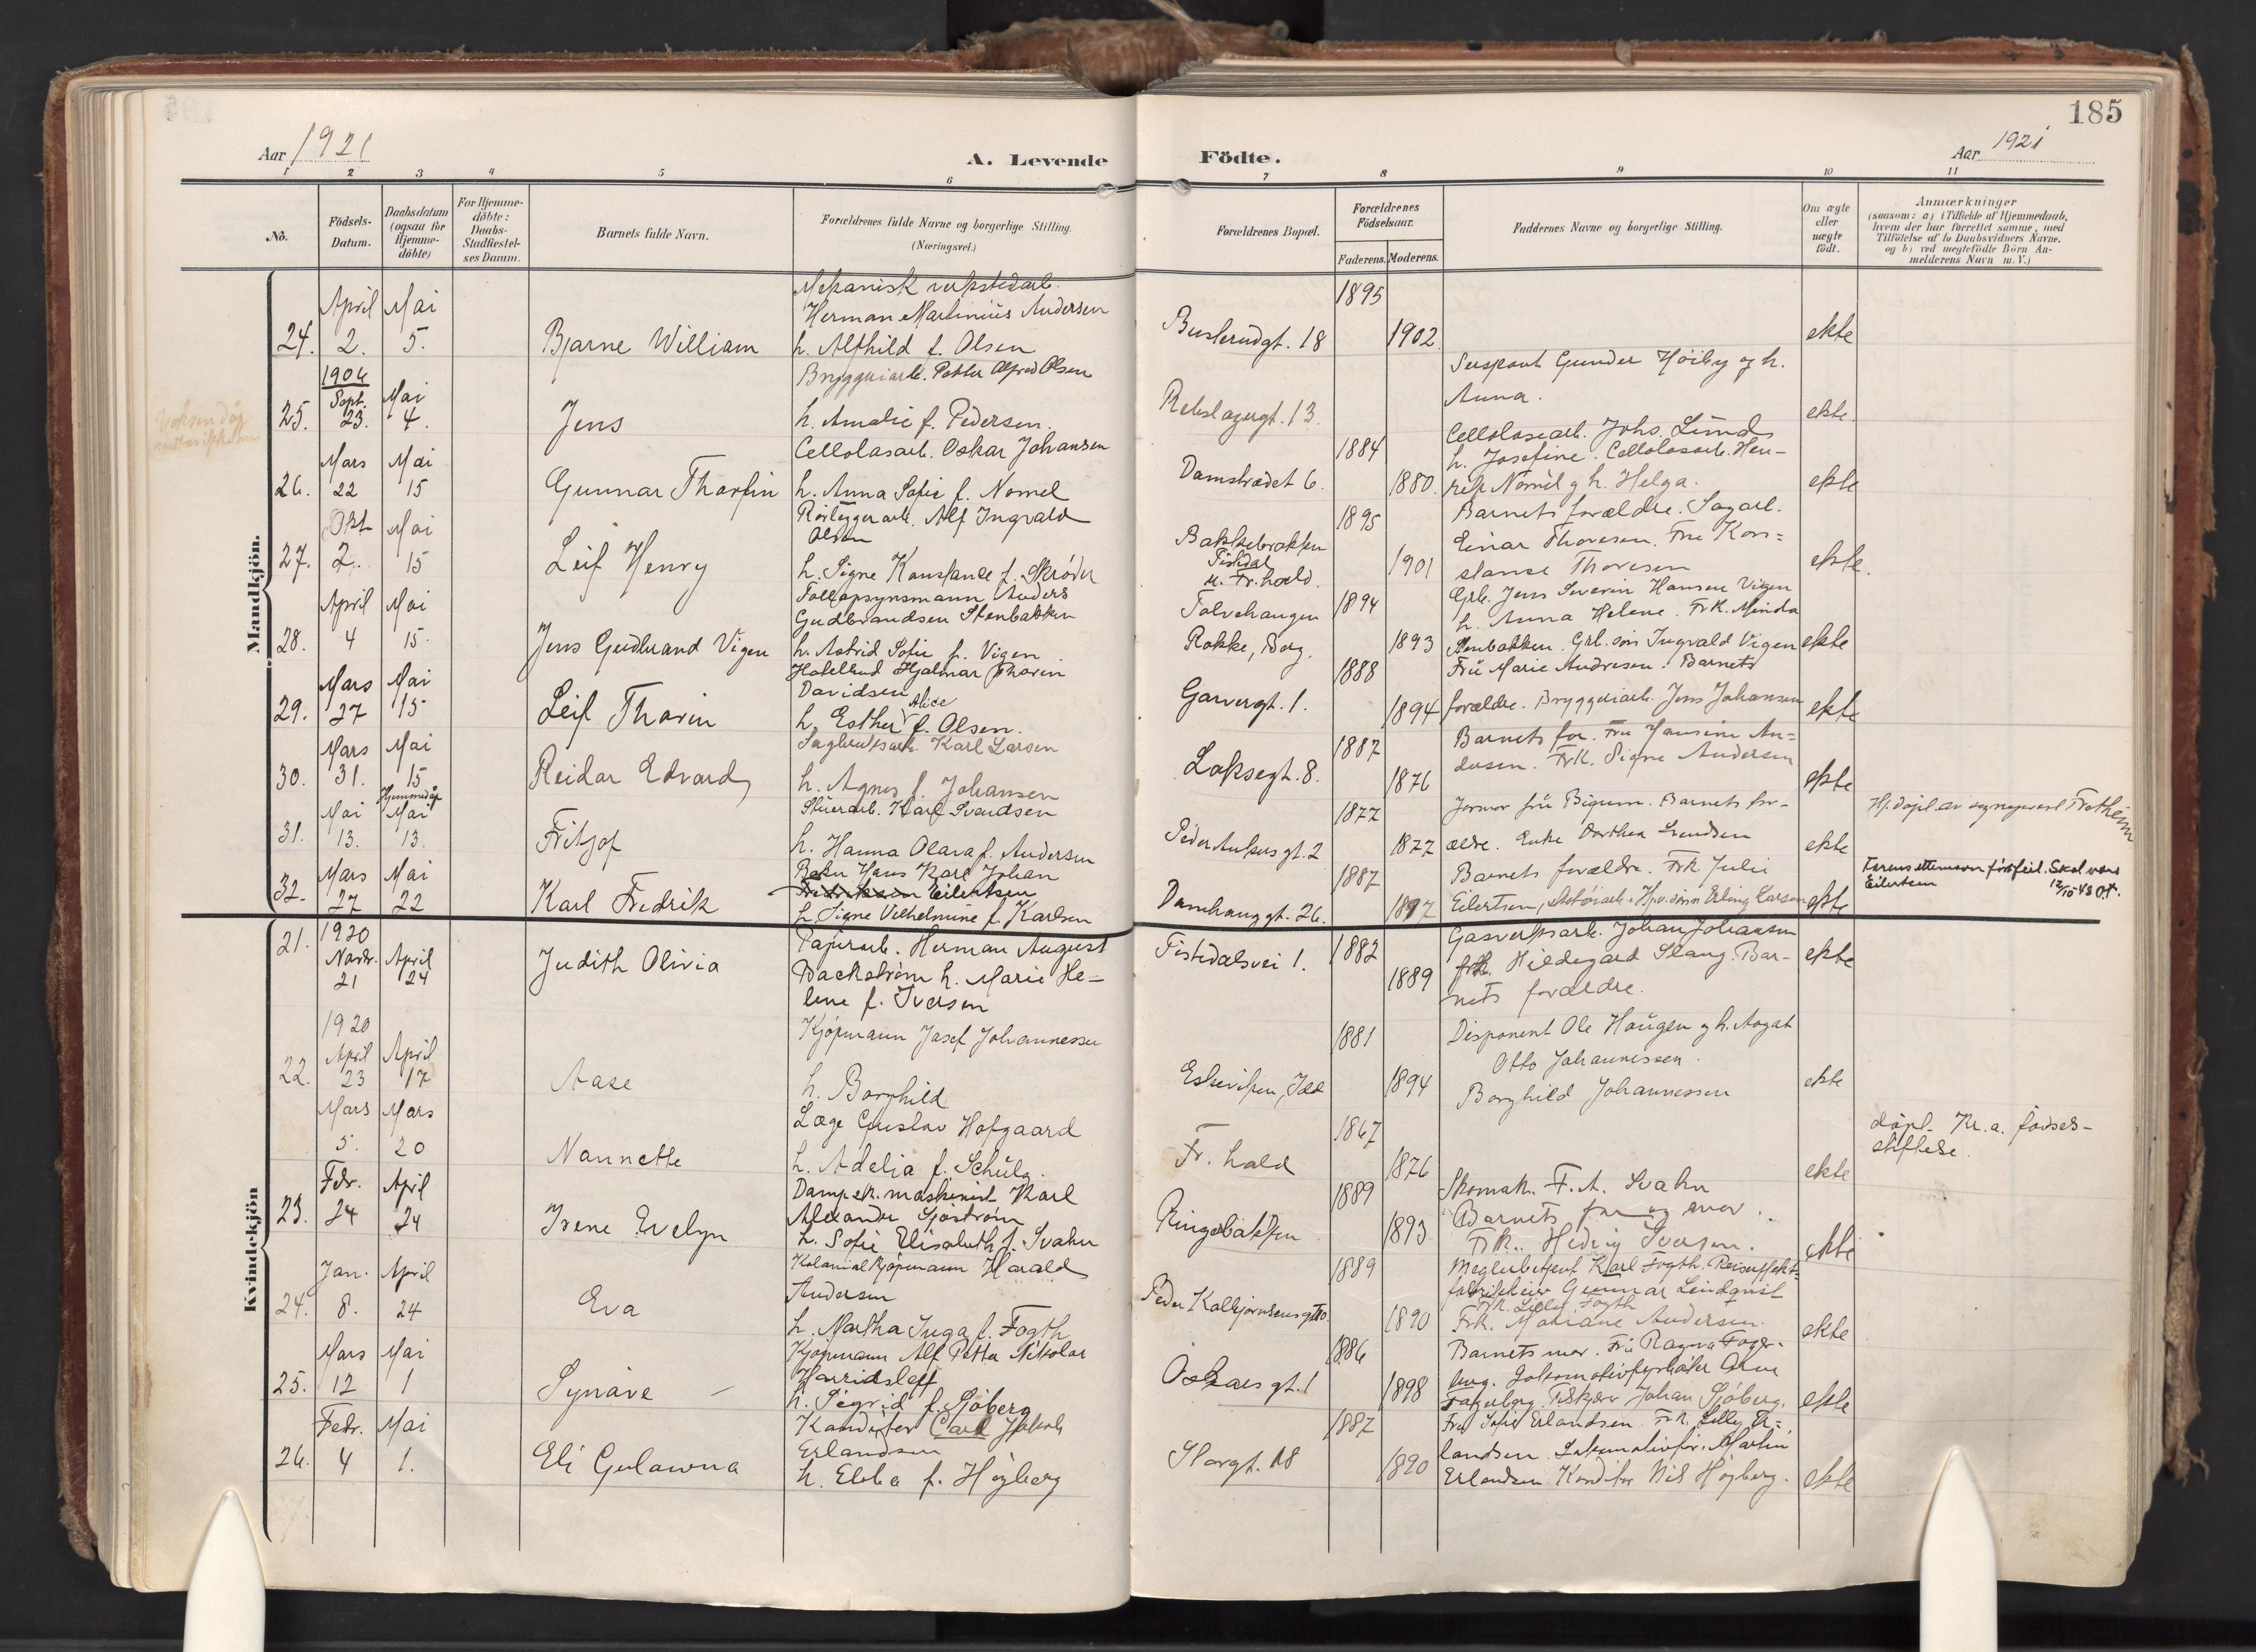 185
Aar 1921
A. Levende Födte.
Aar 1921
1 2 3 4 5 6 7 8 9 10 11
No.
Födsels-Datum.
Daabsdatum (ogsaa for Hjemme-döbte)
For Hjemme-döbte: Daabs-Stadfæstel-ses Datum.
Barnets fulde Navn.
Forældrenes fulde Navne og borgerlige Stilling. (Næringsvei.)
Forældrenes Bopæl.
Forældrenes Födselsaar.
Faderens. Moderens.
Faddernes Navne og borgerlige Stilling.
Om ægte eller uægte födt.
Anmærkninger
(saasom: a) i Tilfælde af Hjemmedaab,
hvem der har forrettet samme, med
Tilföielse af to Daabsvidners Navne,
og b) ved uægtefödte Börn An-
melderens Navn m. V.)
Mandkjön.
24. April 2. Mai 5. Bjarne William
Mekanisk verkstedarb.
Herman Martinius Andersen
h. Alfhild f. Olsen
Buskrudgt. 18 1895 1902. ekte
25. 1904 Sept. 23. Mai 4. Jens
Bryggeriarb. Petter Alfred Olsen
h. Amalie f. Pedersen.
Rebslagergt. 13.
Sersjant Gunder Höiby og h.
Anna.
ekte.
26. Mars 22 Mai 15 Gunnar Thorfin
Cellolosarb. Oskar Johansen
h. Anna Sofie f. Nomel
Damstrædet 6. 1884 1880.
Cellolosearb. Johs. Lund
h. Josefine. Cellolosarb. Hen-
rik Nomel g h. Helga.
ekte
27. Okt 2. Mai 15 Leif Henry
Rörleggerarb. Alf Ingvald
Olsen
h. Signe Konstanse f. Skrøder
Bakkebrakken
Tistedal
u. Fr.hald.
1895 1901
Barnets forældre. Sagarb.
Einar Thoresen. Fru Kon=
stanse Thoresen
ekte.
28. April 4 Mai 15. Jens Gudbrand Vigen
Tollopsynsmann Anders
Gudbrandsen Stenbakken
h. Astrid Sofie f. Vigen
Tolvehaugen
Rokke, Berg.
1894 1893
Grb. Jens Severin Hansen Vigen
h. Anna Helene. Frk. Minda
Stenbakken. Grb. sön Ingvald Vigen
ekte
29. Mars 27 Mai 15 Leif Thorin
Hotelbud Hjalmar Thorin
Davidsen
Alice
h. Esther f. Olsen.
Garvergt. 1. 1888 1894
Fru Marie Andresen. Barnets
forældre. Bryggeriarb. Jens Johansen
ekte
30. Mars 31. Mai 15 Reidar Edvard
Sagbruksarb. Karl Larsen
h. Agnes f. Johansen
Laksegt. 8. 1887 1876
Barnets for. Fru Hansine An=
dersen. Frk. Signe Andersen
ekte
31. Mai 13. Hjemmedåp Mai 13. Fritjof
Skierarb. Karl Svendsen
h. Hanna Olava f. Andersen
Peder Ankers gt. 2 1877 1877
Jormor frü Bigum. Barnets for-
ældre. Enke Dorthea Svendsen
ekte
Hj. döpt av sogneprest Frotheim
32. Mars 27 Mai 22 Karl Fredrik
Baker Hans Karl Johan
Fredriksen Eilertsen
h. Signe Vilhelmine f. Karlsen
Damhaug gt. 26. 1887 1897
Barnets forældre. Frk. Julie
Eilertsen, Erling Larsen
ekte
Farens etternavn før feil. Skal være
Eilertsen 12/10-43 OT.
Kvindekjön
21. 1920 Novbr. 21 April 24 Judith Olivia
Papirarb. Herman August
Backström h. Marie He=
lene f. Iversen
Tistedalsvei 1. 1882 1889
Gasverksarb. Johan Johansen
frk. Hildegard Slang. Bar-
nets forældre.
ekte
22. 1920 April 23 April 17 Aase
Kjöpmann Josef Johannessen
h. Borghild
Eskeviken, Idd 1881 1894
Disponent Ole Haugen g h. Aagot
Otto Johannessen.
Borghild Johannessen
ekte
Mars 5. Mars 20 Nannette
Læge Gustav Hofgaard
h. Adelia f. Schulz.
Fr. hald 1867 1876 ekte
döpt. Kr.a. födsels-
stiftelse
23. Febr. 24 April 24 Irene Evelyn
Dampsk. maskinist Karl
Alexander Sjöström
h. Sofie Elisabeth f. Svahn
Ringsbakken 1889 1893
Skomak. F. A. Svahn
Barnets far og mor.
Frk. Hedvig Iversen.
ekte
24. Jan. 8. April 24 Eva
Kolonialkjöpmann Harald
Andersen
h. Martha Inga f. Fogth
Peder Kolbjørnsens gt. 10. 1889 1890
Meglerbetjent Karl Fogth. Reiseeffekt-
fabrikkeier Gunnar Lindqvist
Frk. Lilly Fogth
Frk. Mariane Andersen.
ekte
25. Mars 12 Mai 1 Synnøve
Kjöpmann Alf Petter Nikolai
Harridsleff
h. Sigrid f. Sjöberg
Oskars gt. 1 1886 1898
Barnets mor. Frü Ragna Fager-
berg. Lokomotivfyrböter Arne
Fagerberg. Fiskjær Johan Sjöberg.
ekte
26. Febr. 4 Mai 1. Eli Gulawna
Konditor Carl Jakob
Erlandsen
h. Ebba f. Högberg
Storgt. 18 1887 1890
Fru Sofie Erlandsen Frk. Lilly Er=
landsen. Lokomotivför. Martin
Erlandsen Konditor Nils Högberg.
ekte